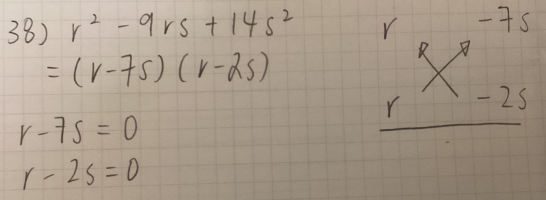 38) r² - 9rs + 14s²
= (r-7s) (r-2s)
r-7s = 0
r-2s=0
r -7s
r -2s